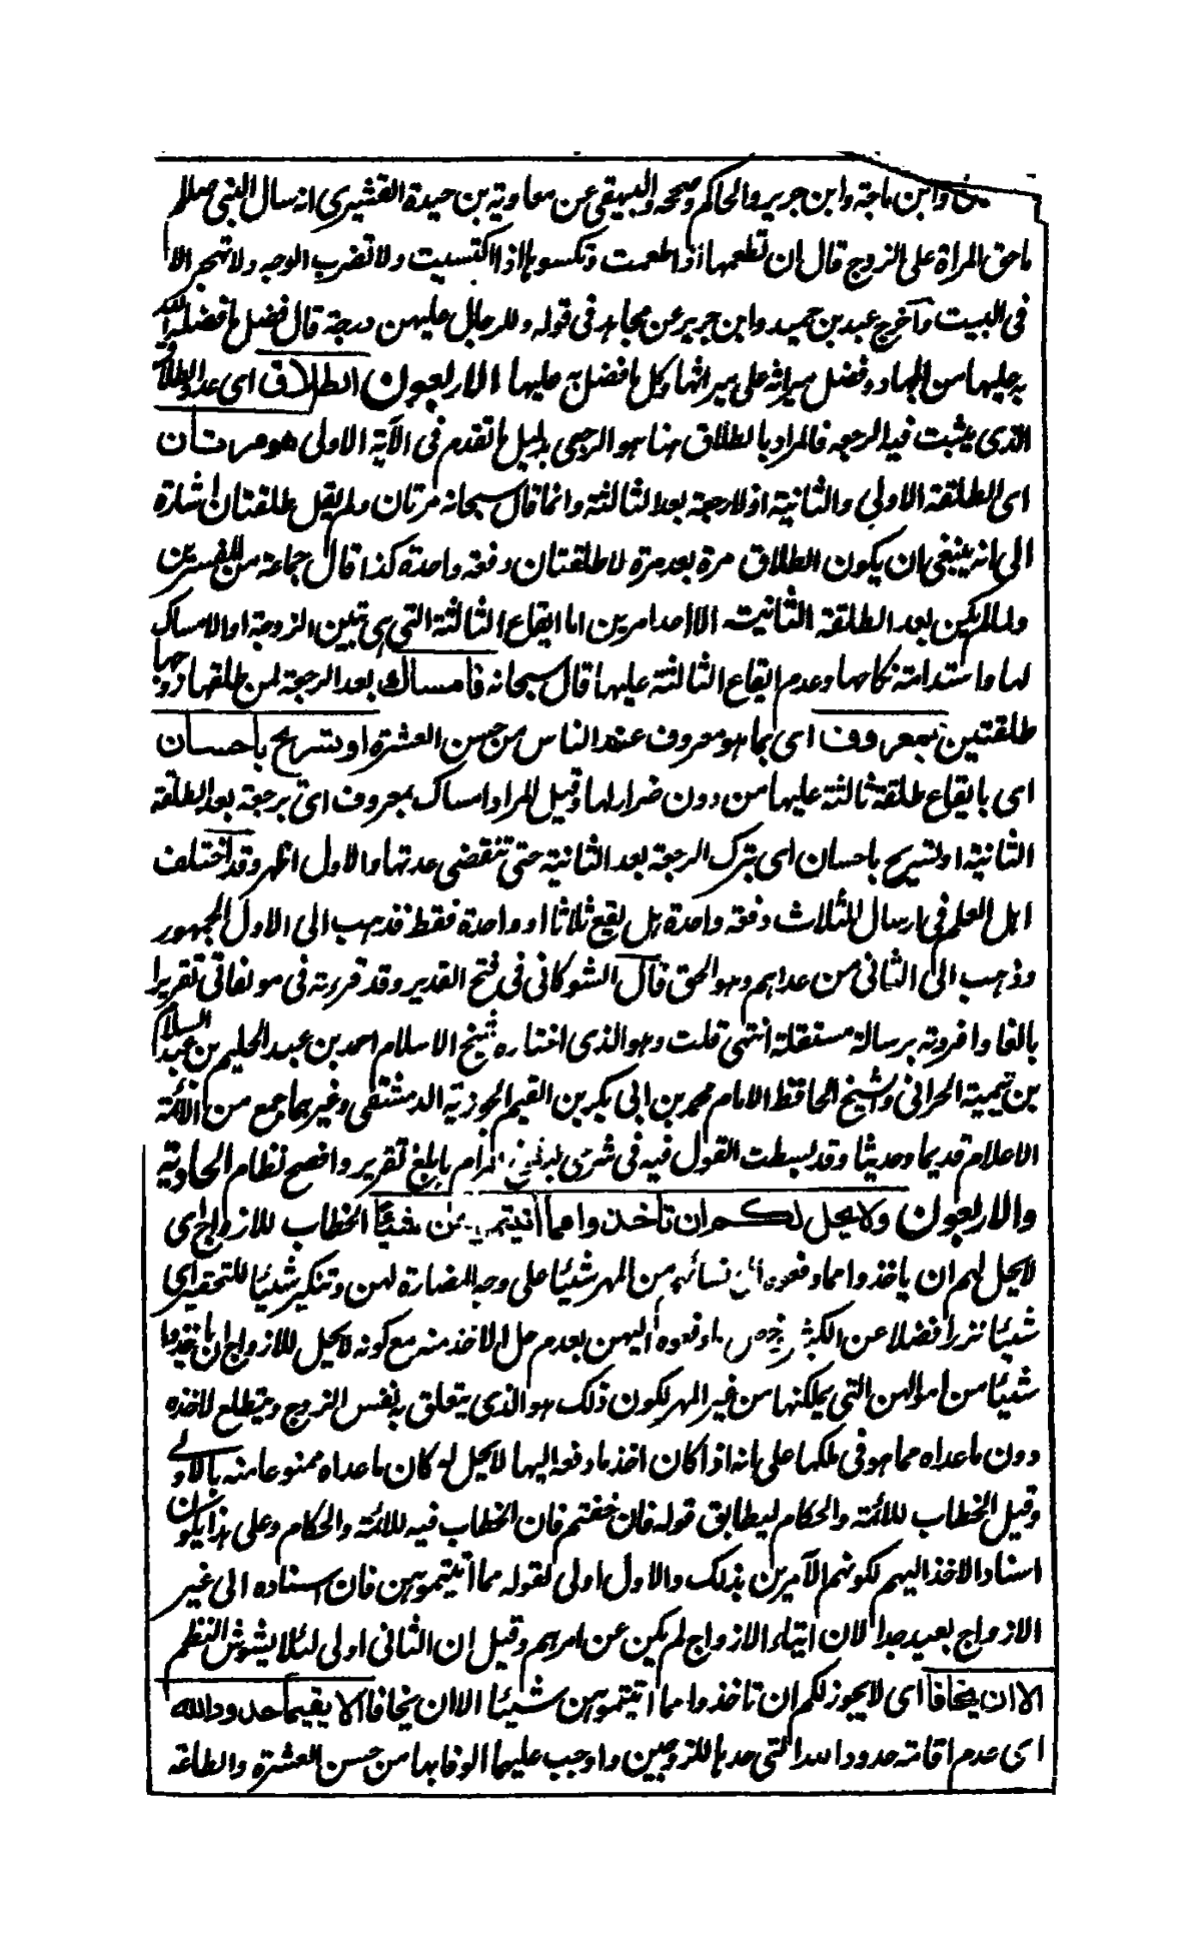 وابن ماجة وابن جرير والحاكم وصححه والبيهقي عن معاوية بن حيدة القشيري انه سال النبي صللم
ماحق المراة على الزوج قال ان تطعمها اذا طعمت وتكسوها اذا اكتسيت ولا تضرب الوجه ولا تهجر الا
فى البيت واخرج عبد بن حميد وابن جرير عن مجاهد فى قوله وللرجال عليهن درجة قال فضل ما فضله الله
به عليها من الجهاد وفضل ميراثه على ميراثها وكل ما فضل به عليها الاربعون الطلاق اى عدد الطلاق
الذى يثبت فيه الرجعه فالمراد بالطلاق هنا هو الرجعي بدليل ما تقدم فى الآية الاولى هو مرتان
اى الطلقة الاولى والثانية اذ لا رجعة بعد الثالثة وانما قال سبحانه مرتان ولم يقل طلقتان اشارة
الى انه ينبغى ان يكون الطلاق مرة بعد مرة لا طلقتان دفعة واحدة كذا قال جماعة من المفسرين
ولما لم يكن بعد الطلقة الثانية الا احد امرين اما ايقاع الثالثة التى بهى تبين الزوجة او الامساك
لها واستدامة نكاحها وعدم ايقاع الثالثة عليها قال سبحانه فامساك بعد الرجعة لمن طلقها زوجها
طلقتين بمعروف اى بما هو معروف عند الناس من حسن العشرة او تسريح باحسان
اى بايقاع طلقة ثالثة عليها من دون ضرار لها وقيل المراد امساك بمعروف اى برجعة بعد الطلقة
الثانية او تسريح باحسان اى بترك الرجعة بعد الثانية حتى تنقضى عدتها والاول اظهر وقد اختلف
اهل العلم فى ارسال الثلاث دفعة واحدة هل يقع ثلاثا او واحدة فقط فذهب الى الاول الجمهور
وذهب الى الثانى من عداهم وهو الحق قال الشوكانى فى فتح القدير وقد قررته فى مولفاتى تقريرا
بالغا وافردته برسالة مستقلة انتهى قلت وهو الذى اختاره شيخ الاسلام احمد بن عبد الحليم بن عبد السلام
بن تيمية الحرانى والشيخ الحافظ الامام محمد بن ابى بكر بن القيم الجوزية الدمشقى وغيرهما جمع من الائمة
الاعلام قديما وحديثا وقد بسطت القول فيه فى شرحى لبلوغ المرام بابلغ تقرير وافصح نظام الحادية
والاربعون ولا يحل لكم ان تاخذوا مما اتيتموهن شيئا الخطاب للازواج اى
لا يحل لهم ان ياخذوا مما دفعوه الى نسائهم من المهر شيئا على وجه المضارة لهن وتنكير شيئا للتحقير اى
شيئا نزرا فضلا عن الكثير وخص ما دفعوه اليهن بعدم حل الاخذ منه مع كونه لا يحل للازواج ان ياخذوا
شيئا من اموالهن التى يملكنها من غير المهر لكون ذلك هو الذى يتعلق به نفس الزوج ويتطلع لاخذه
دون ماعداه مما هو فى ملكها على انه اذا كان اخذ ما دفعه اليها لا يحل له كان ماعداه ممنوعا منه بالاولى
وقيل الخطاب للائمة والحكام ليطابق قوله فان خفتم فان الخطاب فيه للائمة والحكام وعلى هذا يكون
اسناد الاخذ اليهم لكونهم الآمرين بذلك والاول اولى لقوله مما آتيتموهن فان اسناده الى غير
الازواج بعيد جدا لان ايتاء الازواج لم يكن عن امرهم وقيل ان الثانى اولى لئلا يشوش النظم
الا ان يخافا اى لا يجوز لكم ان تاخذوا مما اتيتموهن شيئا الا ان يخافا الا يقيما حدود الله
اى عدم اقامة حدود الله التى حدها للزوجين واوجب عليهما الوفا بها من حسن العشرة والطاعة